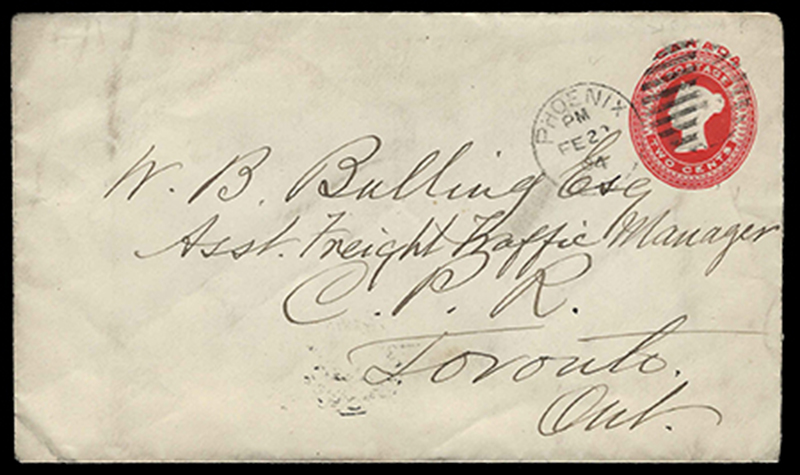 CANADA
POSTAGE
TWO CENTS
PHOENIX
PM
FE 2
04
W. B. Bulling Esq
Asst. Freight Traffic Manager
C. P. R.
Toronto.
Ont.